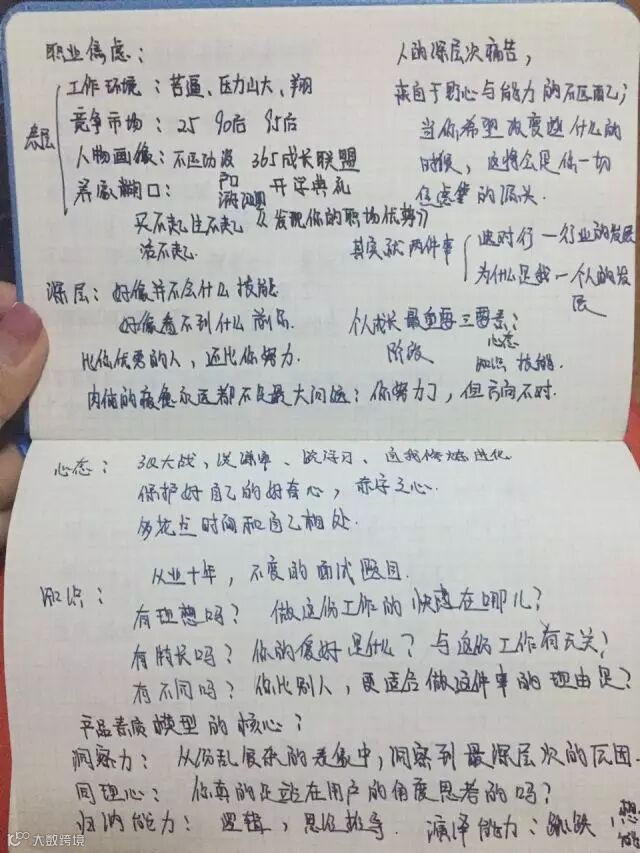 职业焦虑：
表层
工作环境：苦逼、压力山大、翔
竞争市场：25 90后 95后
人物画像：不 365成长联盟
养家糊口： 开学典礼
买不起住不起《发现你的职场优势》
活不起
深层：好像并不会什么技能
好像看不到什么前景
比你优秀的人，还比你努力.
内伤的疲惫永远都不是最大问题：你努力了，但方向不对.
人的深层次痛苦，
来自于野心与能力的不匹配；
当你希望改变些什么的
时候，这将会是你一切
焦虑 的源头.
其实就两件事
此时行一行业的发展
为什么是我一个人的发
展
个人成长最重要三要素：
阶段
心态
知识 技能.
心态：3 大战，渴 、 学习、自我修炼进化
保护好自己的好奇心，赤字之心.
多花点时间和自己相处.
知识：
从业十年，不变的面试题目.
有理想吗？做这份工作的快感在哪儿？
有特长吗？你的偏好是什么？与这份工作有无关？
有不同吗？你比别人，更适合做这件事的理由是？
产品素质模型的核心？
洞察力：从纷乱复杂的表像中，洞察到最深层次的原因.
同理心：你真的是站在用户的角度思考的吗？
归纳能力：逻辑，思维推导. 演绎能力：跳跃，想
大数跨境